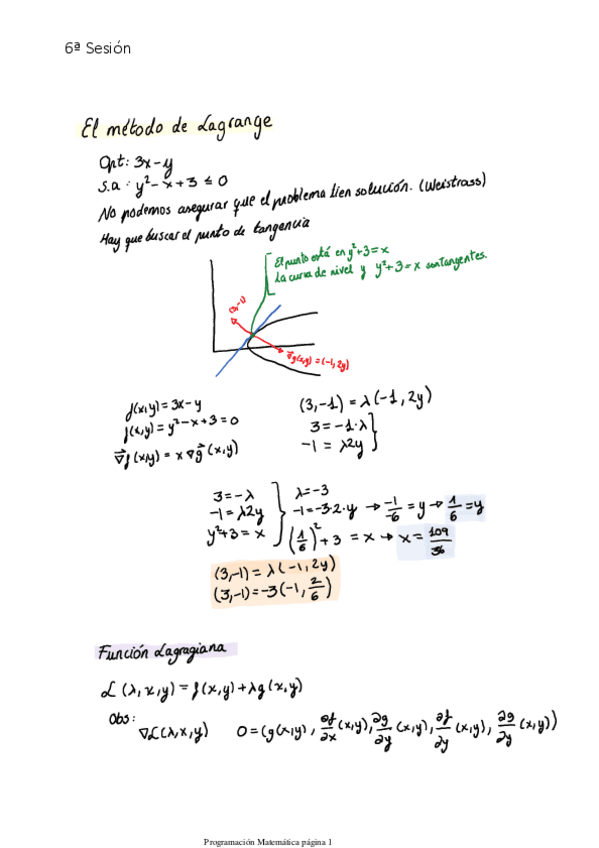 6ª Sesión
El método de Lagrange
Opt: 3x-y
s.a: y²-x+3 ≤ 0
No podemos asegurar que el problema tien solución. (Weistrass)
Hay que buscar el punto de tangencia
El punto está en y²+3=x
La curva de nivel y y²+3=x son tangentes.
(3,-1)
∇g(x,y) = (-1, 2y)
f(x,y) = 3x-y
f(x,y) = y²-x+3=0
∇f(x,y) = x ∇g(x,y)
(3,-1) = λ(-1, 2y)
3 = -1·λ
-1 = λ2y
3=-λ
-1=λ2y
y²+3=x
λ=-3
-1=-3·2·y → -1/-6 = y → 1/6 = y
(1/6)² + 3 = x → x = 109/36
(3,-1) = λ(-1, 2y)
(3,-1) = -3(-1, 2/6)
Función Lagragiana
ℒ(λ,x,y) = f(x,y) + λg(x,y)
Obs:
∇ℒ(λ,x,y) 0 = (g(x,y), ∂f/∂x (x,y), ∂g/∂y (x,y), ∂f/∂y (x,y), ∂g/∂y (x,y))
Programación Matemática página 1